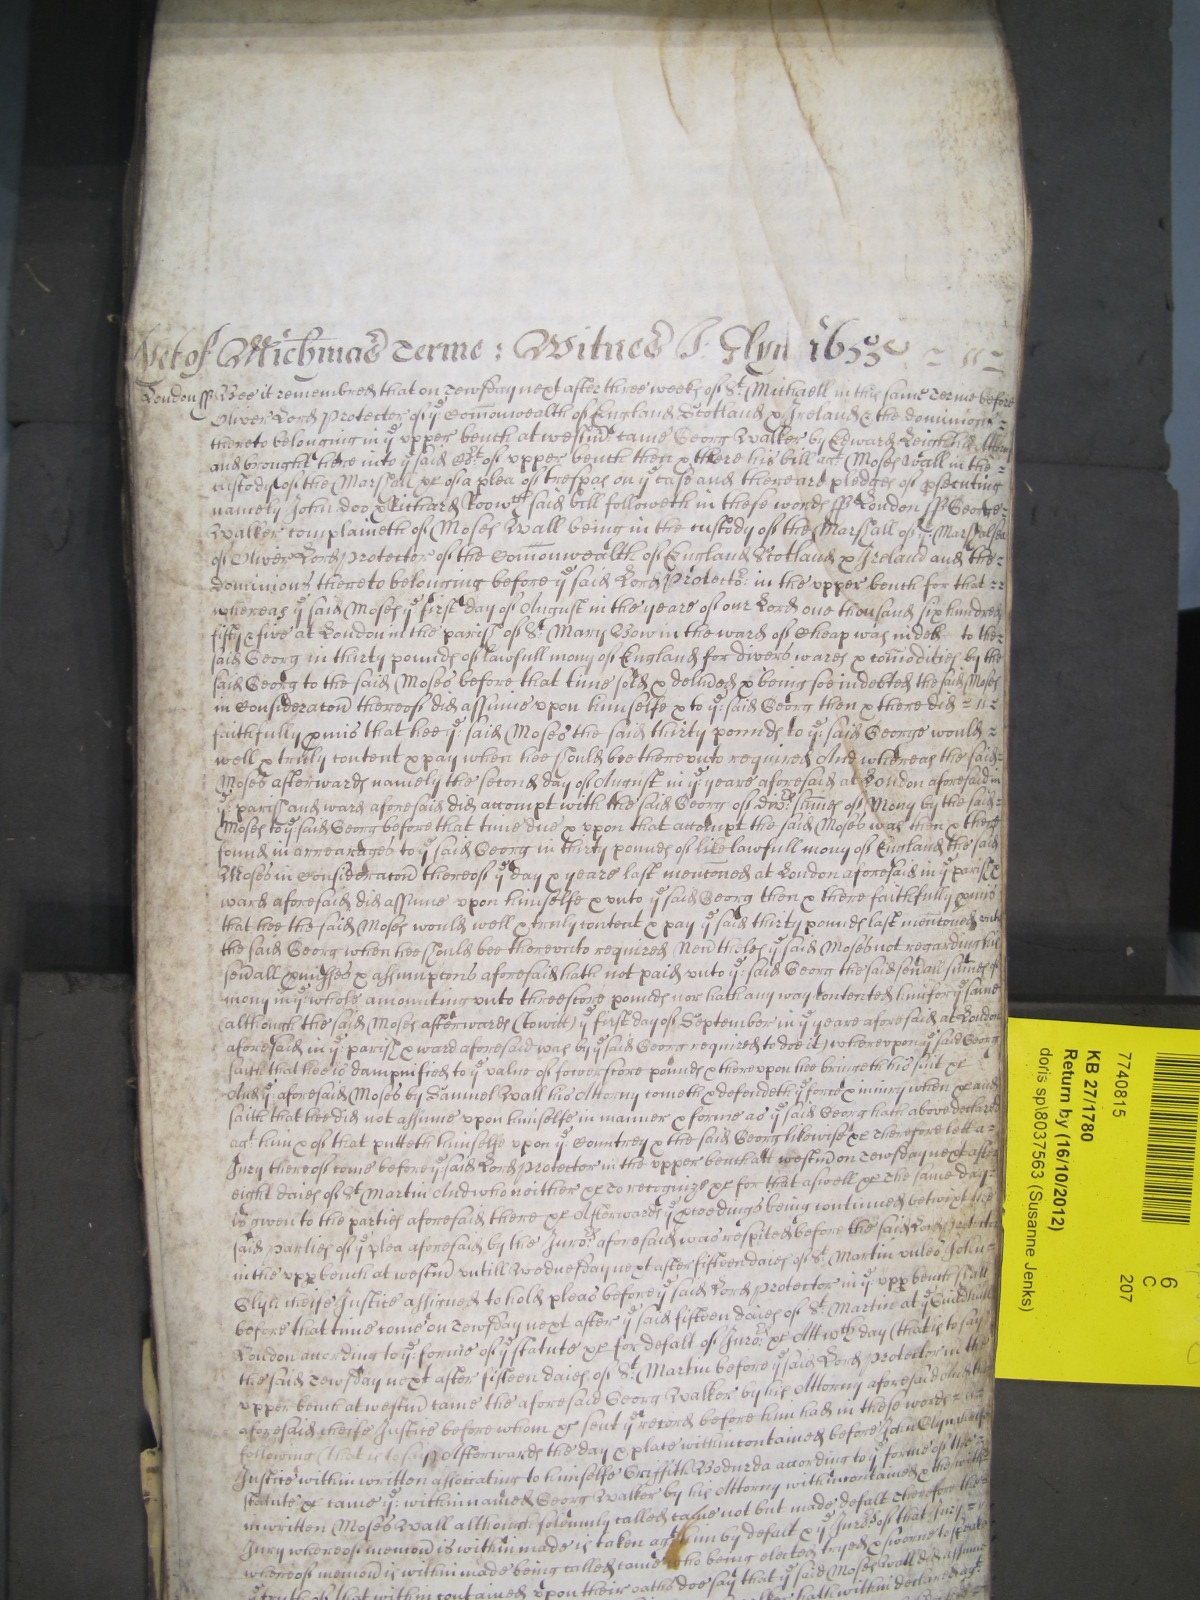 Yet of Michmas Terme : Witnes J. Glyn 1655
London ss Bee it remembred that on Tewsday next after three weeks of St. Michaell in this same Terme before
Oliver Lord Protector of ye Comonwealth of England Scotland & Ireland & the dominions
thereto belonging in ye upper bench at westmr came Georg Walker by Edward Leigh his Attorny
and brought here into ye said Co:rt of upper bench then & there his bill agt Moses Wall in the
custody of the Marshall &c of a plea of trespas on ye case and there are pledges of psecuting
namely John doo & Richard Roo wch said bill followeth in these words ss London ss George
Walker complaineth of Moses Wall being in the custody of the Marshall of ye Marshalsea
of Oliver Lord Protector of the Comonwealth of England Scotland & Ireland and the
dominions thereto belonging before ye said Lord Protector in the upper bench for that
whereas ye said Moses ye first day of August in the yeare of our Lord one thousand six hundred
fifty & five at London in the parish of St. Mary Bow in the ward of Cheap was indebted to the
said Georg in thirty pounds of lawfull mony of England for divers wares & comodities by the
said Georg to the said Moses before that time sold & delived & being soe indebted the said Moses
in Consideraton thereof did assume upon himselfe & to ye said Georg then & there did
faithfully pmis that hee ye said Moses the said thirty pounds to ye said George would
well & truly content & pay when hee should bee thereunto required And whereas the said
Moses afterwards namely the second day of August in ye yeare aforesaid at London aforesaid in
ye parish and ward aforesaid did accompt with the said Georg of divs sumes of Mony by the said
Moses to ye said Georg before that time due & upon that accompt the said Moses was then & there
found in arrearages to ye said Georg in thirty pounds of like lawfull mony of England the said
Moses in Consideraton thereof ye day & yeare last mentoned at London aforesaid in ye parish &
ward aforesaid did assume upon himselfe & unto ye said Georg then & there faithfully pmis
that hee the said Moses would well & truly content & pay ye said thirty pounds last mentoned unto
the said Georg when hee should bee thereunto required Nevtheles ye said Moses not regarding his
sevall pmisses & assumptons aforesaid hath not paid unto ye said Georg the said sevall sumes of
mony in ye whole amounting unto threescore pounds nor hath any way contented him for ye same
(although the said Moses afterwards (towitt) ye first day of September in ye yeare aforesaid at London
aforesaid in ye parish & ward aforesaid was by ye said Georg required to doe it) whereupon ye said Georg
saith that hee is dampnified to ye value of fowerscore pounds & thereupon hee bringeth his suit &c
And ye aforesaid Moses by Samuel Wall his Attorny cometh & defendeth ye force & iniury when &c and
saith that hee did not assume upon himselfe in manner & forme as ye said Georg hath above declared
agt him & of that putteth himselfe upon ye Countrey & the said Georg likewise &c Therefore lett a
Jury thereof come before ye said Lord Protector in the upper bench att westm on Tewsday next after
eight daies of St. Martin And who neither &c To recognize &c for that aswell &c The same day
is given to the parties aforesaid there &c Afterwards ye pceedings being continued betwixt the
said parties of ye plea aforesaid by the Juro:rs aforesaid was respited before the said Lord Protector
in the upp bench at westm untill Wednesday next after fifteen daies of St. Martin unles John
Glyn cheife Justice assigned to hold pleas before ye said Lord Protector in ye upp bench shall
before that time come on Tewsday next after ye said fifteen daies of St. Martin at ye Guildhall
London according to ye forme of ye statute &c for defalt of Juro:rs &c Att wch day (that is to say
the said Tewsday next after fifteen daies of St. Martin before ye said Lord Protector in the
upper bench at westm came the aforesaid Georg Walker by his Attorny aforesaid And the
aforesaid cheife Justice before whom &c sent ye record before him had in these words
following (that is to say) Afterwards the day & place within contained before John Glyn cheife
Justice within written associating to himselfe Griffith Bodurda according to ye forme of the
statute &c came ye within named Georg Walker by his Attorny within contained & the with
in written Moses Wall although solemnly called came not but made defalt Therefore the
Jury whereof mencon is within made is taken agt him by defalt & ye Juro:rs of that Jury
whereof mencon is within made being called came who being elected tryed & sworne to speake
ye truth of that within contained upon their oaths doe say that ye said Moses Wall did assume
7740815
KB 27/1780
Return by (16/10/2012)
doris sp\8037563 (Susanne Jenks)
6
C
207